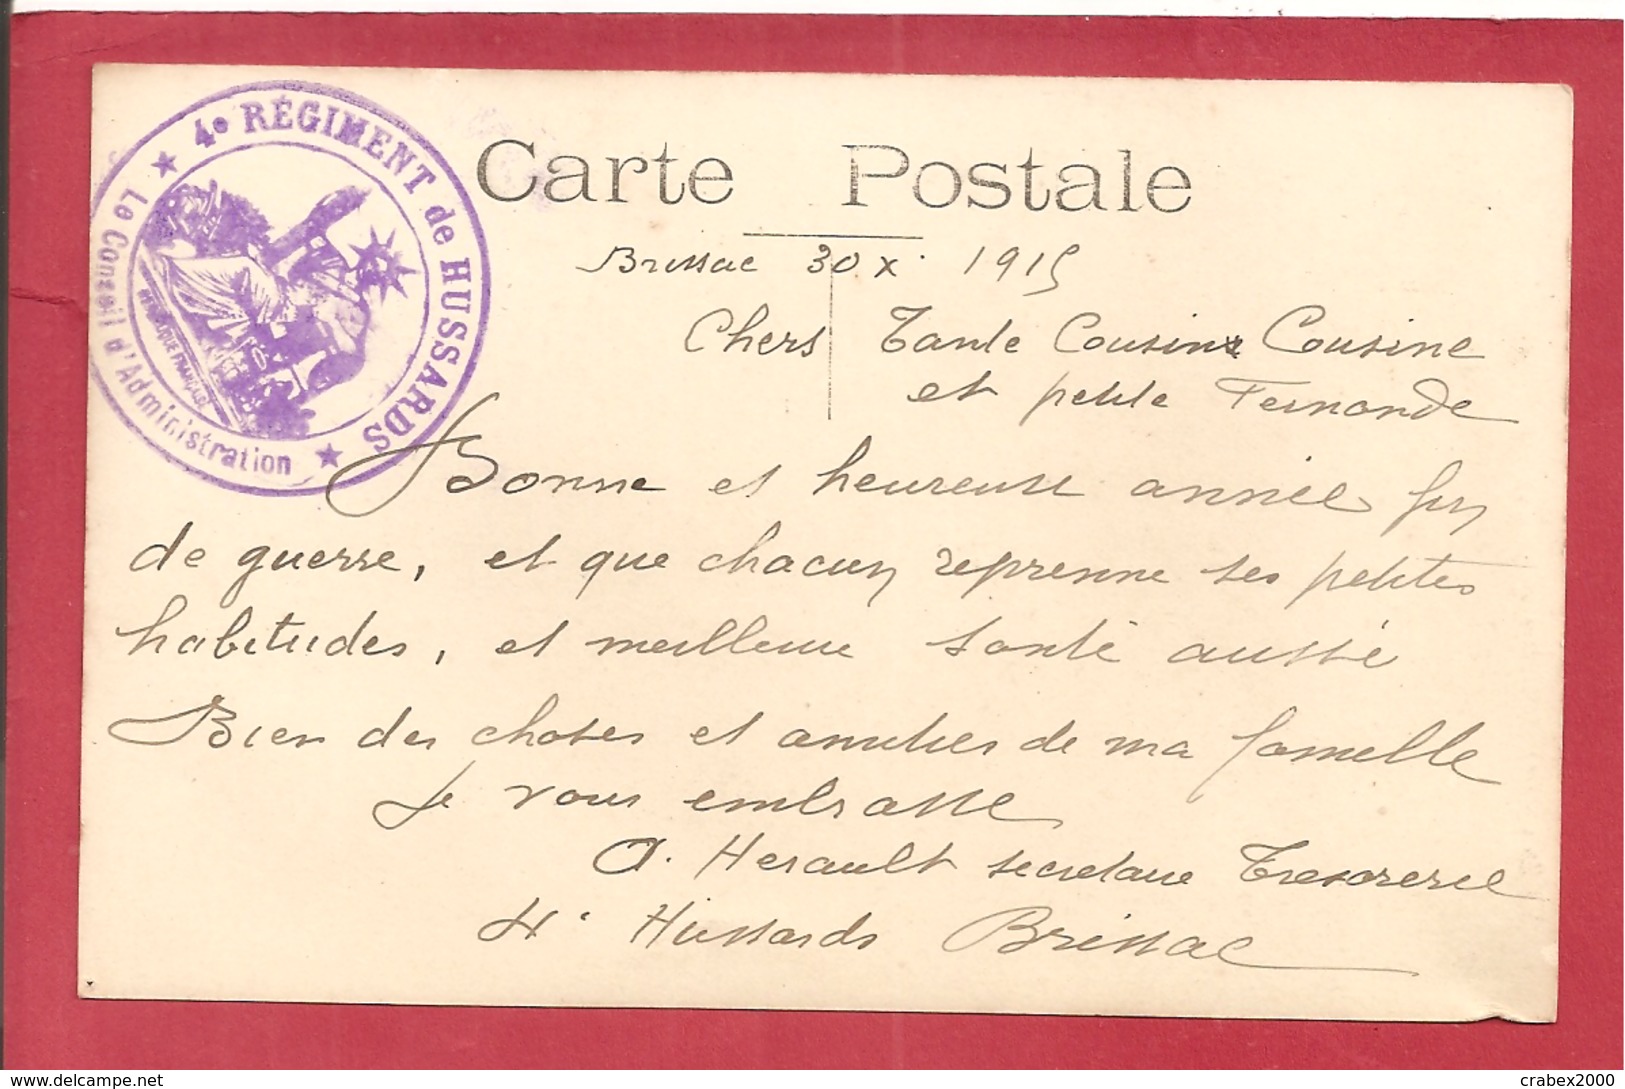 4e RÉGIMENT de HUSSARDS
Le Conseil d'Administration
RÉPUBLIQUE FRANÇAISE
Carte Postale
Brissac 30 Xe 1915
Chers Tante Cousins Cousine
et petite Fernande
Bonne et heureuse année fin
de guerre, et que chacun reprenne ses petites
habitudes, et meilleure santé aussi
Bien des choses et amitiés de ma famille
Je vous embrasse
A. Herault secrétaire Trésorerie
4e Hussards Brissac
delcampe.net
crabex2000